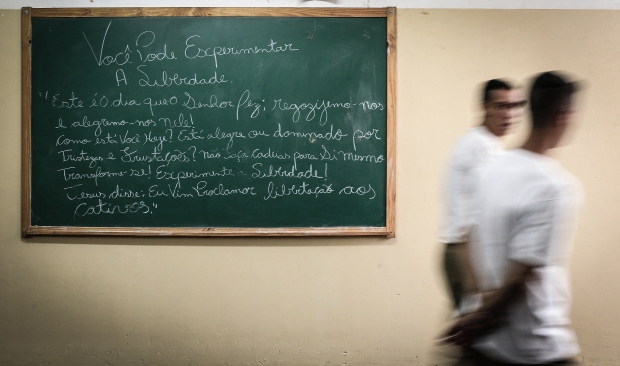 Você Pode Experimentar
A Liberdade.
"Este é o dia que o Senhor fez; regozijemo-nos
e alegremo-nos Nele!
Como está Você Hoje? Está alegre ou dominado por
Tristezas e Frustações? Não faça Cadeias para Si mesmo
Transforme-se! Experimente a Liberdade!
Jesus disse: Eu Vim Proclamar libertação aos
cativos."